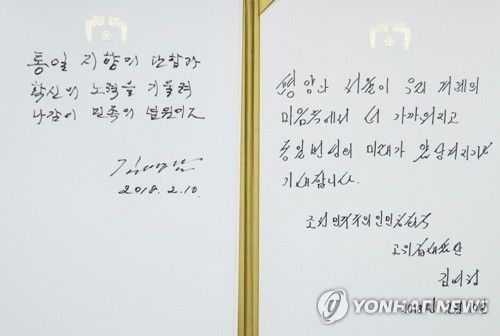 통일 지향의 단합과
확신의 노력을 기울려
나감이 민족의 념원이오
김영남
2018. 2. 10.
평양과 서울이 우리 겨레의
마음속에서 더 가까워지고
통일번영의 미래가 앞당겨지기를
기대합니다.
조선민주주의인민공화국
고위급대표단
김여정
2018년 2월 10일
YONHAPNEWS